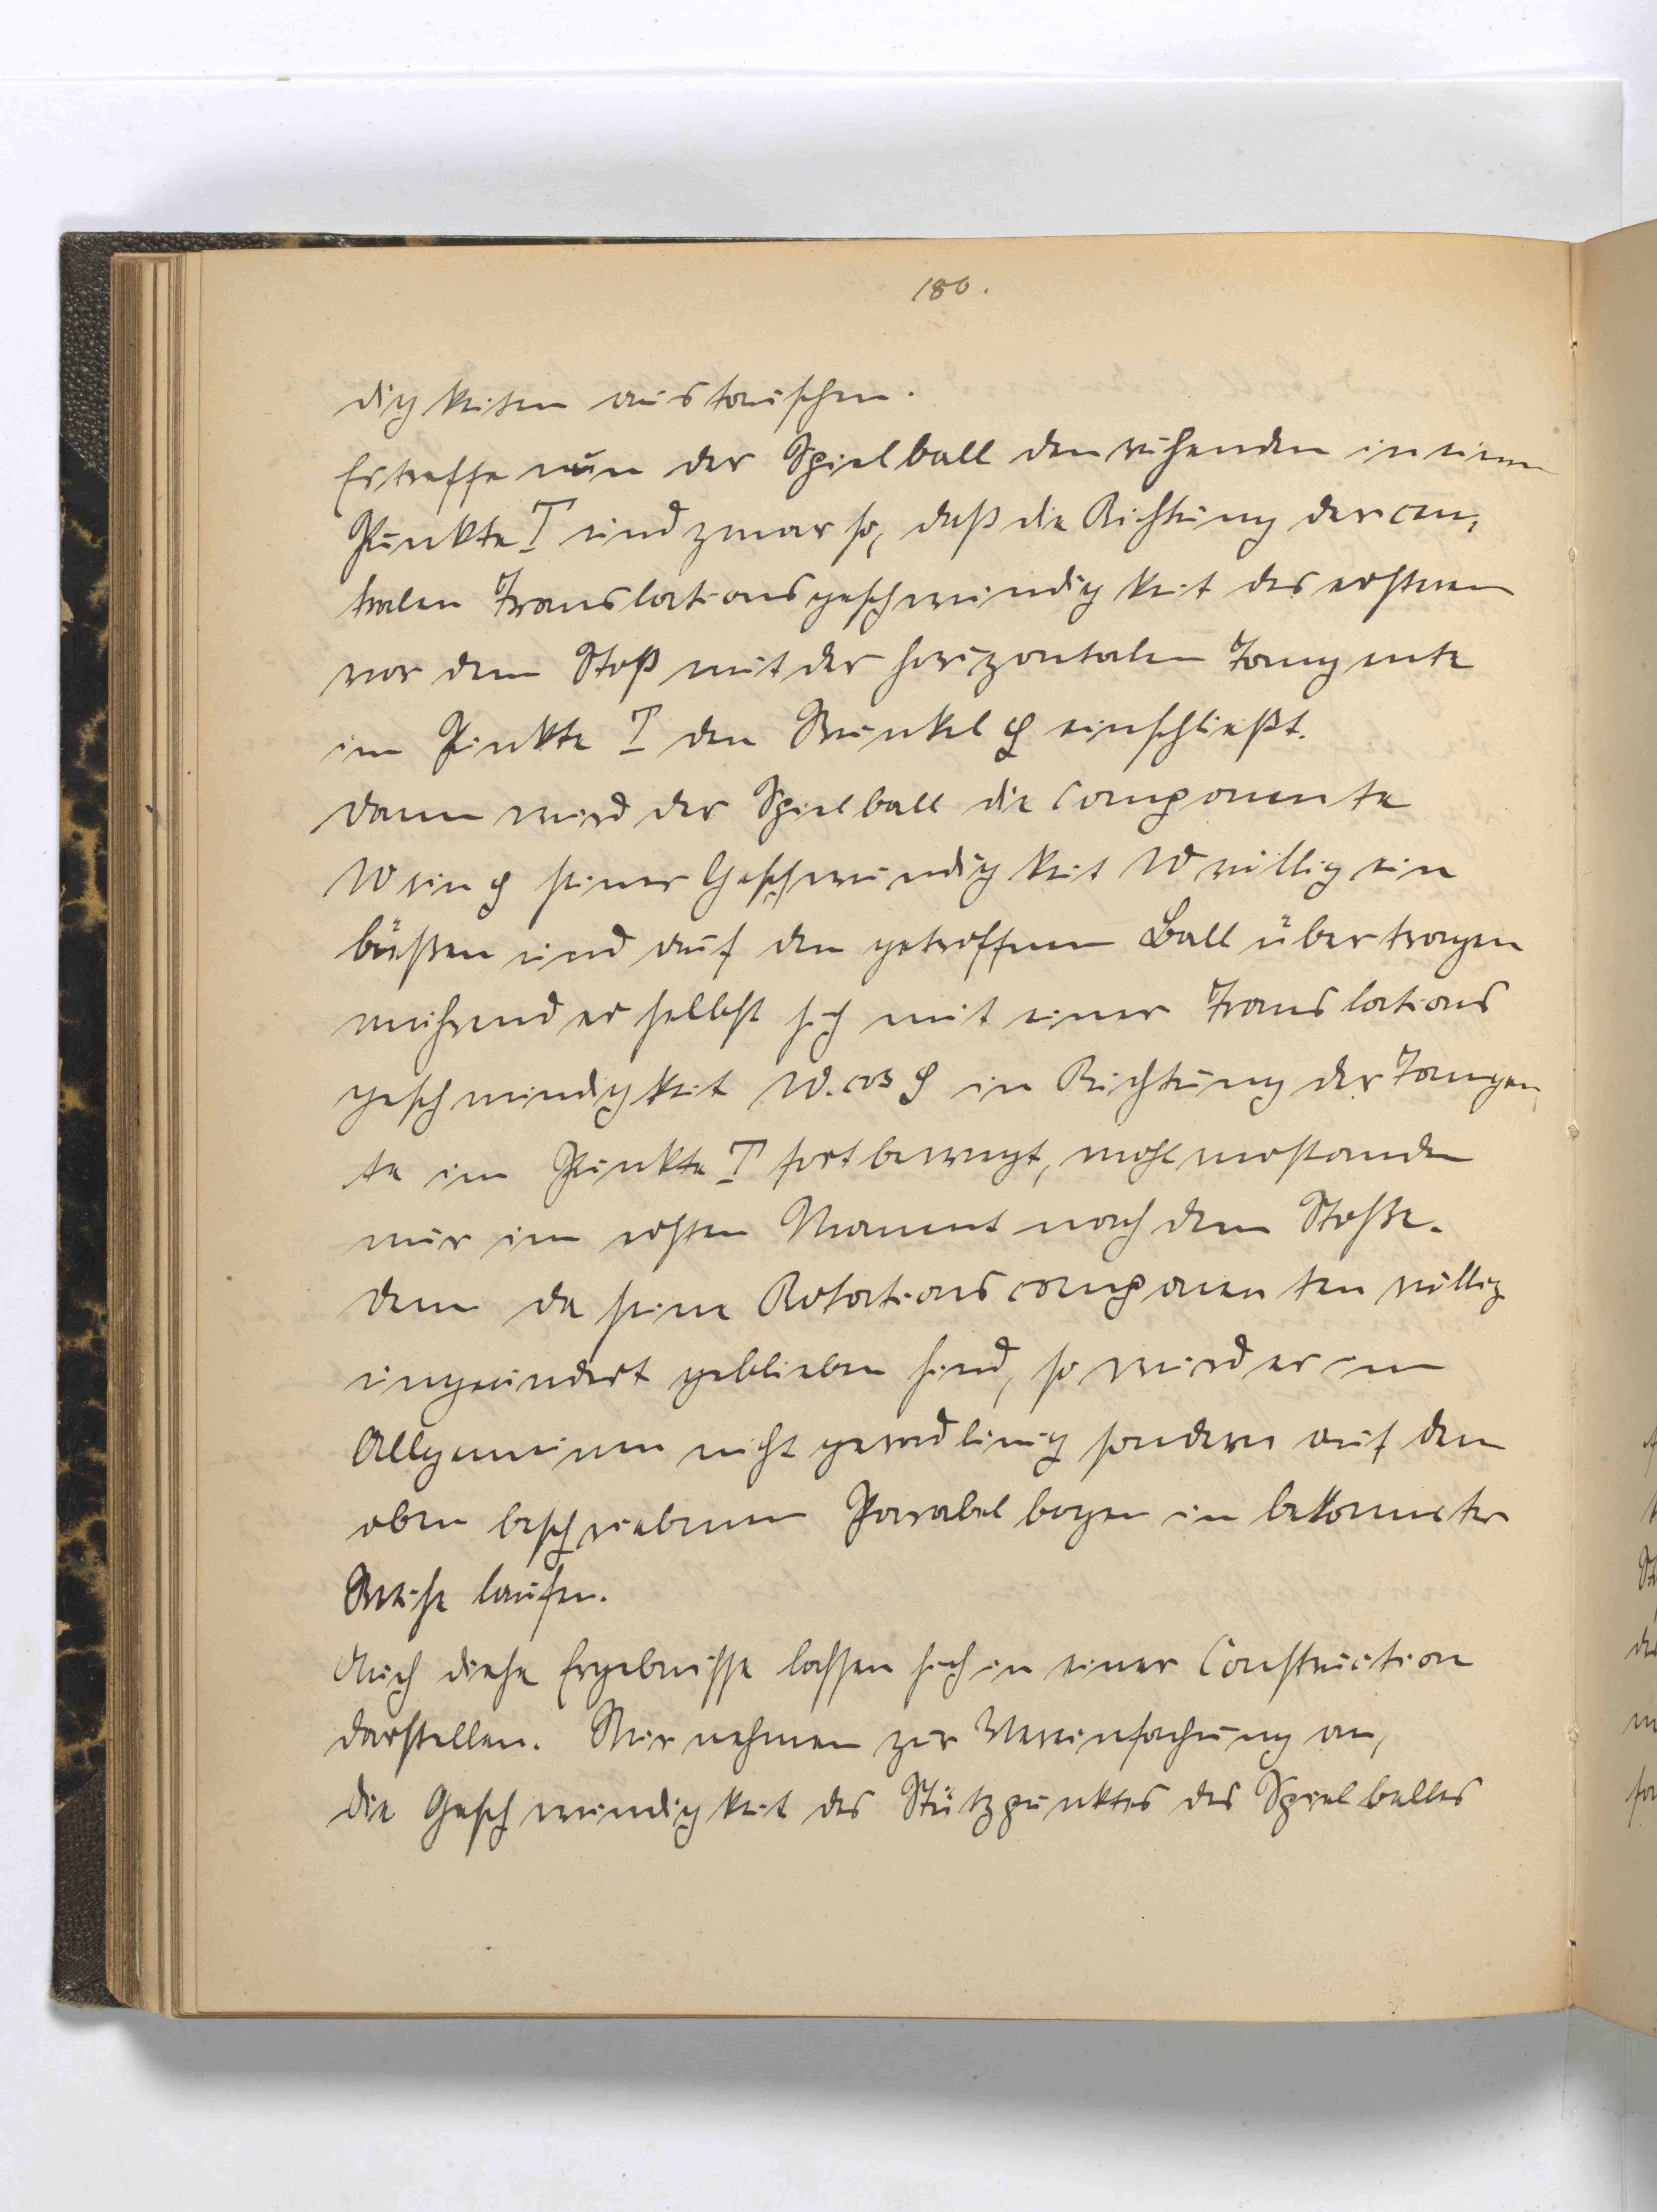 180.
digkeiten austauschen.
Es treffe nun der Spielball den ruhenden in einem
Punkte T und zwar so, daß die Richtung der cen,
tralen Translationsgeschwindigkeit des ersteren
vor dem Stoß mit der horizontalen Tangente
im Punkte T den Winkel φ einschließt.
Dann wird der Spielball die Componente
W sin φ seiner Geschwindigkeit W völlig ein
büßen und auf den getroffenen Ball übertragen
während er selbst sich mit einer Translations
geschwindigkeit W. cos φ in Richtung der Tangen,
te im Punkte T fortbewegt, wohlverstanden
nur im ersten Moment nach dem Stoße.
Denn da seine Rotationscomponenten völlig
ungeändert geblieben sind, so wird er im
Allgemeinen nicht geradlinig sondern auf dem
oben beschriebenen Parabelbogen in bekannter
Weise laufen.
Auch diese Ergebnisse lassen sich in einer Construction
darstellen. Wir nehmen zur Vereinfachung an,
die Geschwindigkeit des Stützpunktes des Spielballes